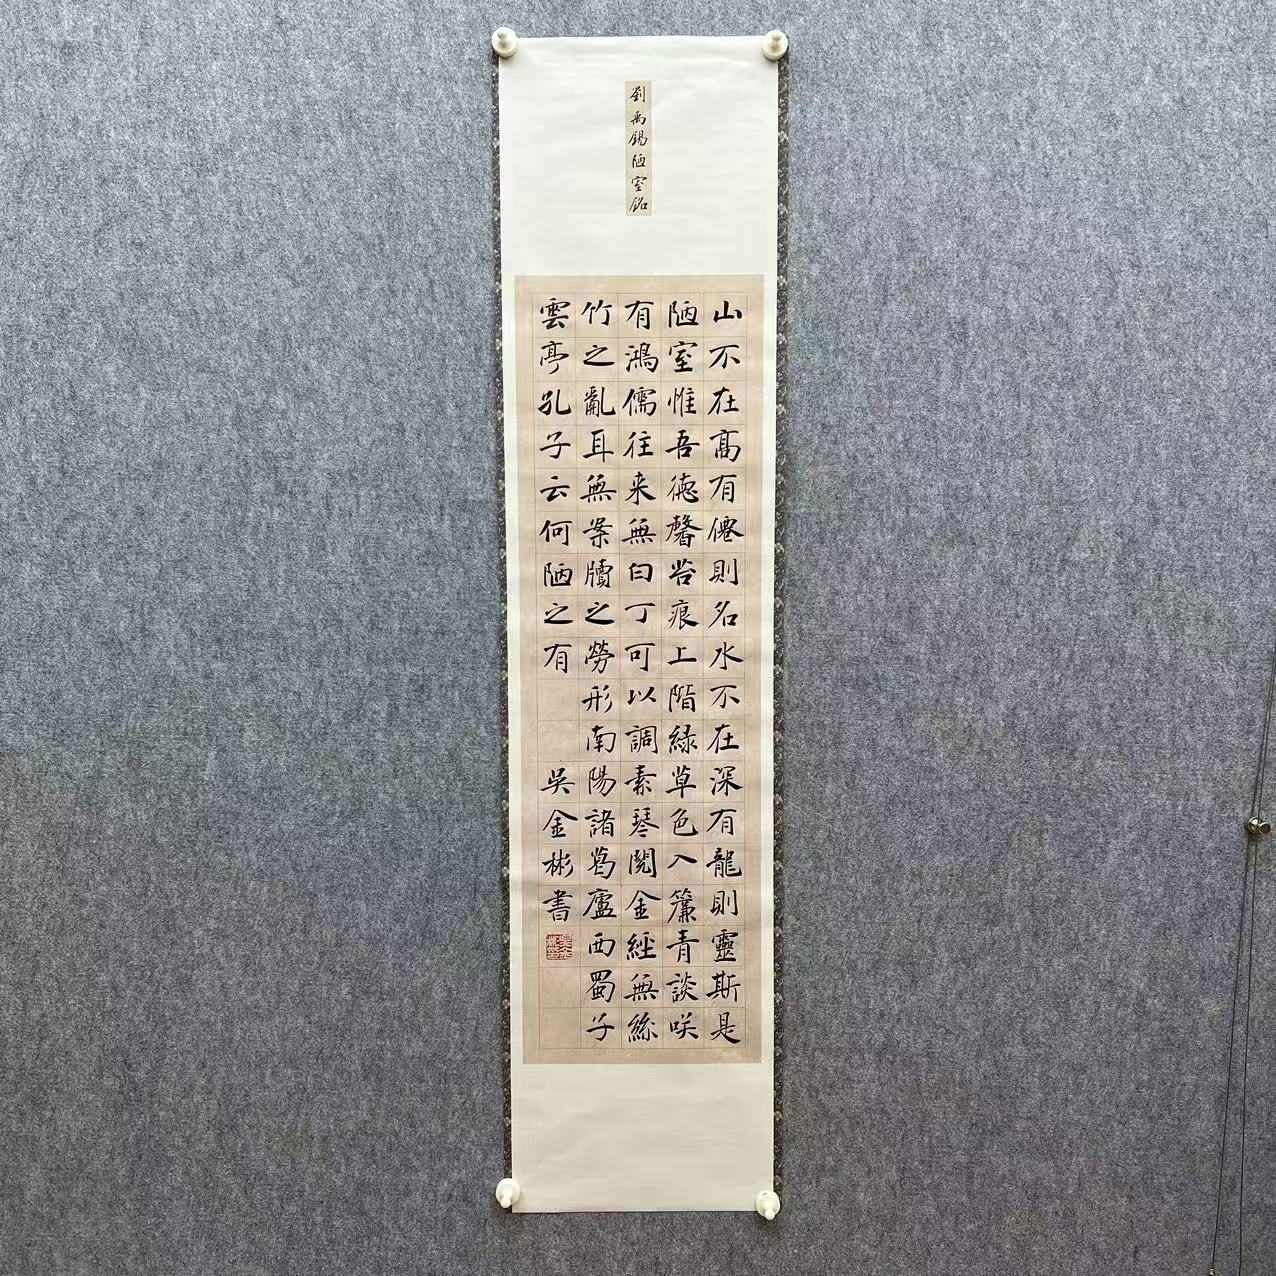 劉禹錫陋室銘
山不在高有僊則名水不在深有龍則靈斯是
陋室惟吾德馨苔痕上階緑草色入簾青談咲
有鴻儒往来無白丁可以調素琴閱金經無絲
竹之亂耳無案牘之勞形南陽諸葛廬西蜀子
雲亭孔子云何陋之有
吳金彬書